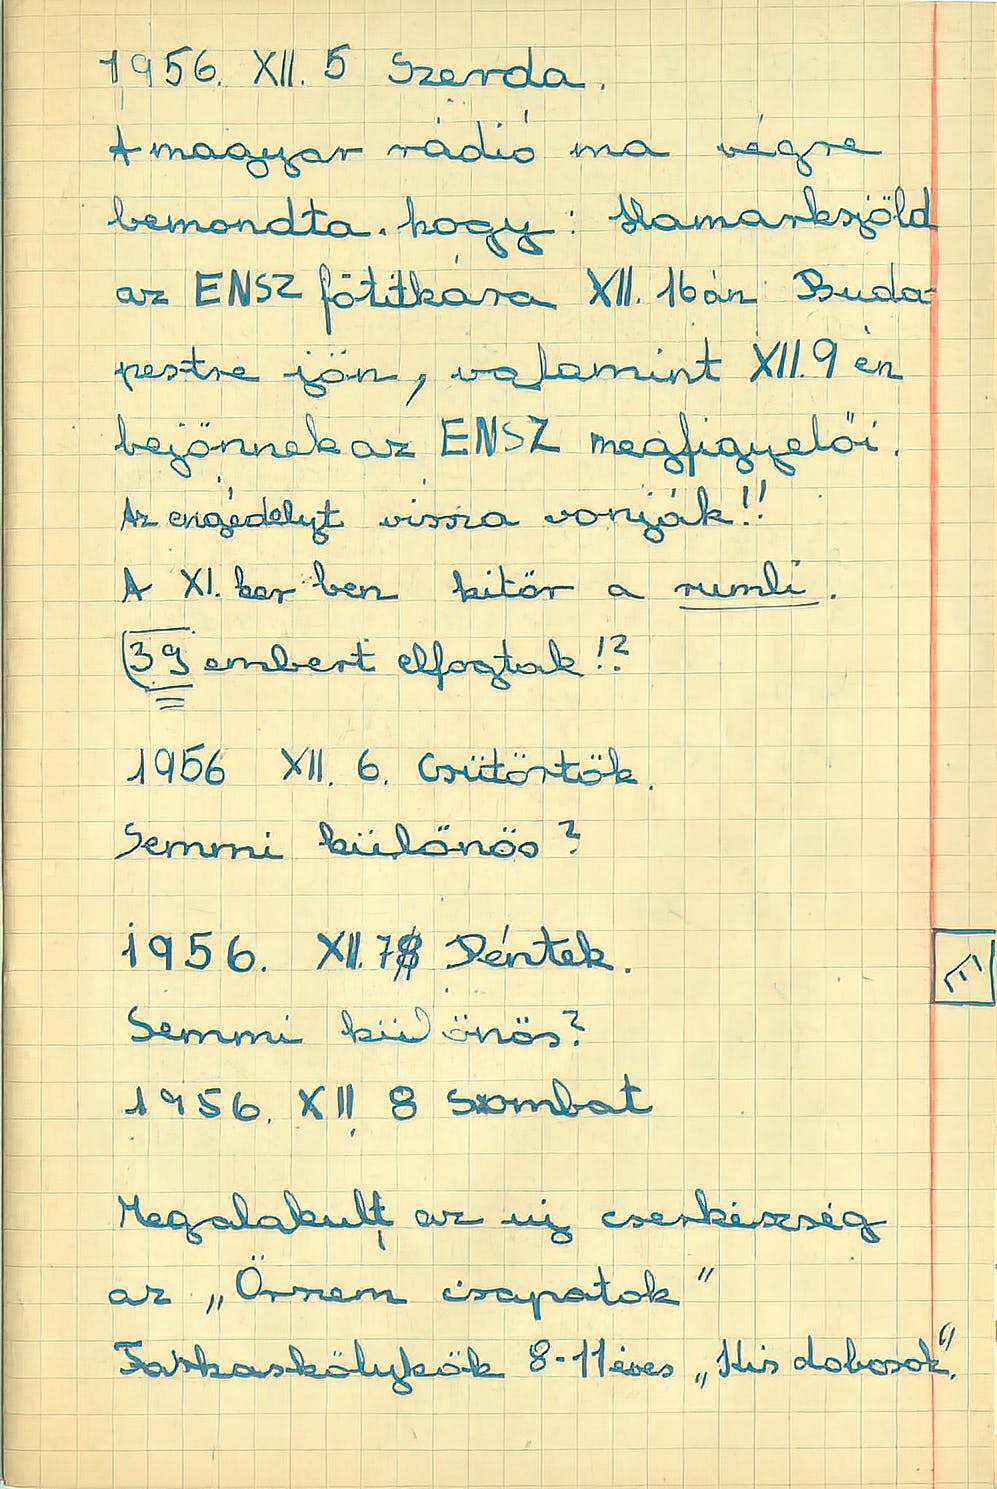 1956. XII. 5 Szerda.
A magyar rádió ma végre
bemondta. hogy: Hamarksjöld
az ENSZ főtitkára XII. 16án Buda-
pestre jön, valamint XII. 9 én
bejönnek az ENSZ megfigyelői.
Az engedélyt vissza vonják!!
A XI. ker ben kitör a rumli.
39 embert elfogtak!?
1956 XII. 6. Csütörtök.
Semmi különös?
1956. XII. 7 Péntek.
Semmi különös?
1956. XII 8 Szombat
Megalakult az új cserkészség
az „Őrszem csapatok"
Farkaskölykök 8-11 éves „Kis dobosok".